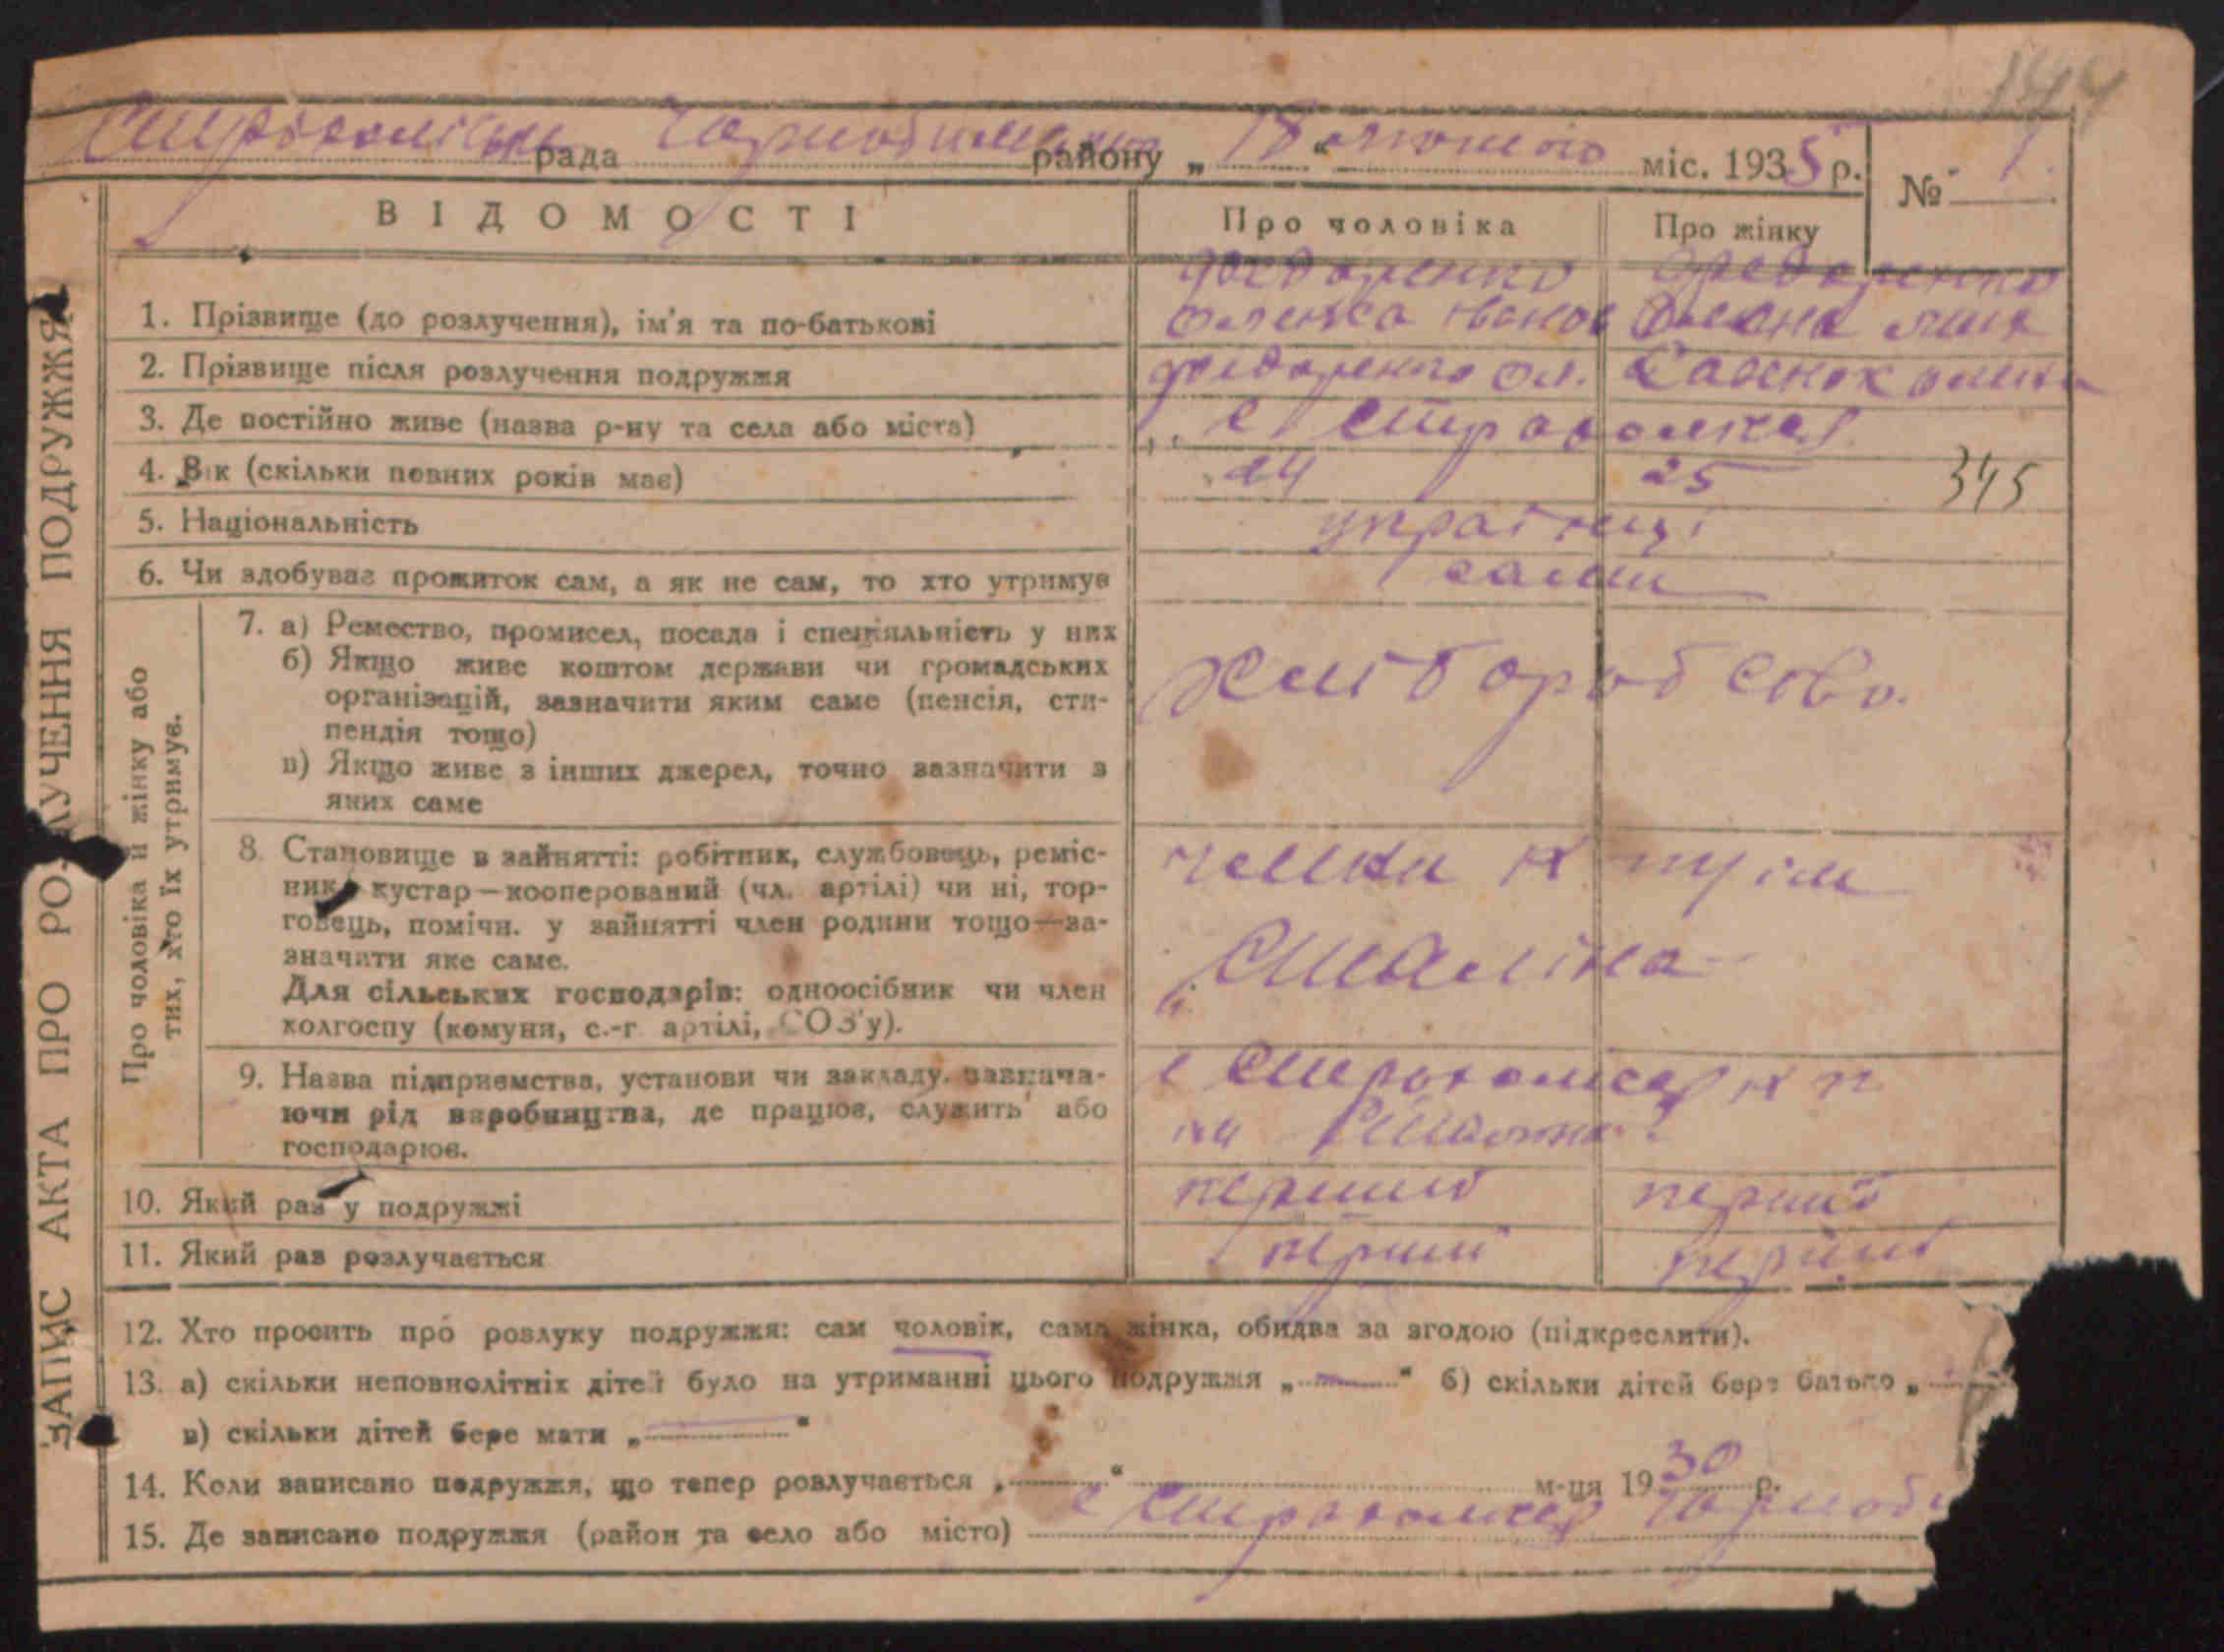 144
рада Чорнобильськ району „18" лютого міс. 1935 р.
№ 1.
ВІДОМОСТІ
Про чоловіка
Про жінку
Федоренко
Федоренко
1. Прізвище (до розлучення), ім'я та по-батькові
Олекса Іванов
2. Прізвище після розлучення подружжя
Федоренко Ол.
Савенок
3. Де постійно живе (назва р-ну та села або міста)
с Страхолісся
4. Вік (скільки повних років має)
24
25
345
5. Національність
українці
6. Чи здобуває прожиток сам, а як не сам, то хто утримує
сами
Про чоловіка й жінку або
тих, хто їх утримує.
7. а) Ремество, промисел, посада і спеціяльність у них
б) Якщо живе коштом держави чи громадських
організацій, зазначити яким саме (пенсія, сти-
пендія тощо)
в) Якщо живе з інших джерел, точно зазначити з
яких саме
хліборобство.
8. Становище в зайнятті: робітник, службовець, реміс-
ник, кустар—кооперований (чл. артілі) чи ні, тор-
говець, помічн. у зайнятті член родини тощо—за-
значити яке саме.
Для сільських господарів: одноосібник чи член
колгоспу (комуни, с.-г артілі, СОЗ'у).
члени
Сталіна
9. Назва підприємства, установи чи закладу, зазнача-
ючи рід виробництва, де працює, служить або
господарює.
с Страхолісся
10. Який раз у подружжі
перший
перший
11. Який раз розлучається
перший
перший
12. Хто просить про розлуку подружжя: сам чоловік, сама жінка, обидва за згодою (підкреслити).
13. а) скільки неповнолітніх дітей було на утриманні цього подружжя „—" б) скільки дітей бере батько „
в) скільки дітей бере мати „—"
14. Коли записано подружжя, що тепер розлучається „ " м-ця 1930 р.
15. Де записано подружжя (район та село або місто) с Страхолісся Чорноб
ЗАПИС АКТА ПРО РОЗЛУЧЕННЯ ПОДРУЖЖЯ